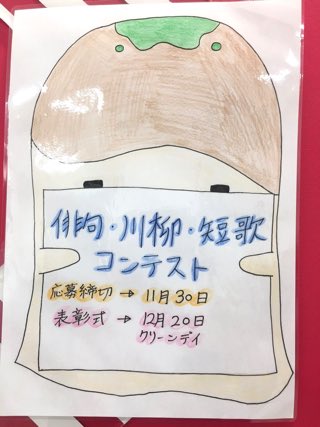 俳句・川柳・短歌
コンテスト
応募締切 → 11月30日
表彰式 → 12月20日
クリーンデイ